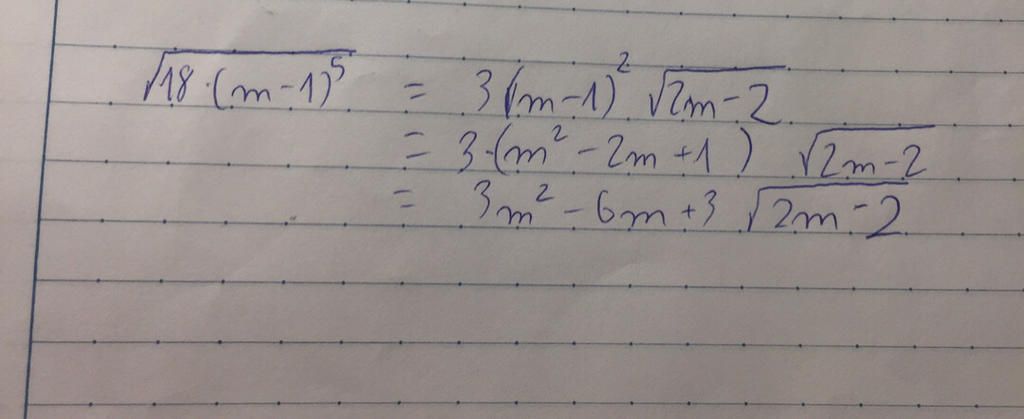 √18·(m-1)⁵ = 3(m-1)² √2m-2
= 3·(m² - 2m + 1) √2m-2
= 3m² - 6m + 3 √2m-2